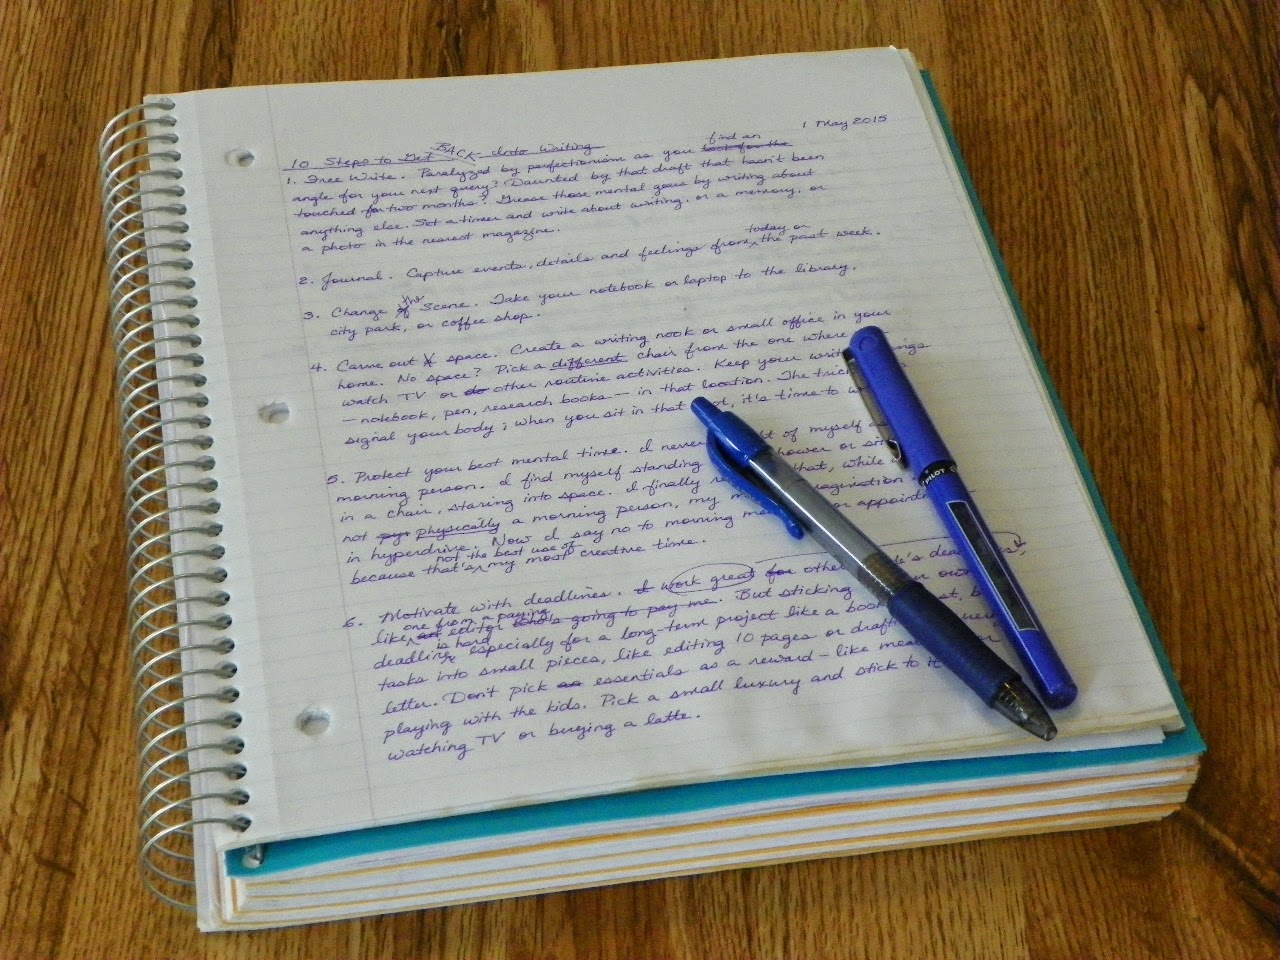 1 May 2015
10 Steps to Get BACK Into Writing
find an
1. Free Write. Paralyzed by perfectionism as you look for the
angle for your next query? Daunted by that draft that hasn't been
touched for two months? Grease those mental gears by writing about
anything else. Set a timer and write about writing, or a memory, or
a photo in the nearest magazine.
today or
2. Journal. Capture events, details and feelings from the past week.
the
3. Change of Scene. Take your notebook or laptop to the library,
city park, or coffee shop.
4. Carve out space. Create a writing nook or small office in your
home. No space? Pick a different chair from the one where
watch TV or do other routine activities. Keep your
— notebook, pen, research books — in that location. The trick
signal your body; when you sit in that it's time to
5. Protect your best mental time. I never of myself
morning person. I find myself standing shower or
in a chair, staring into space. I finally that, while
not physically a morning person, my
in hyperdrive. Now I say no to morning or
not the best use of
because that's my most creative time.
6. Motivate with deadlines. I work great for
one from a paying
like an editor who's going to pay me. But sticking own
is hard
deadlines especially for a long-term project like a book
tasks into small pieces, like editing 10 pages or
letter. Don't pick as essentials as a reward – like
playing with the kids. Pick a small luxury and stick to it
watching TV or buying a latte.
PILOT